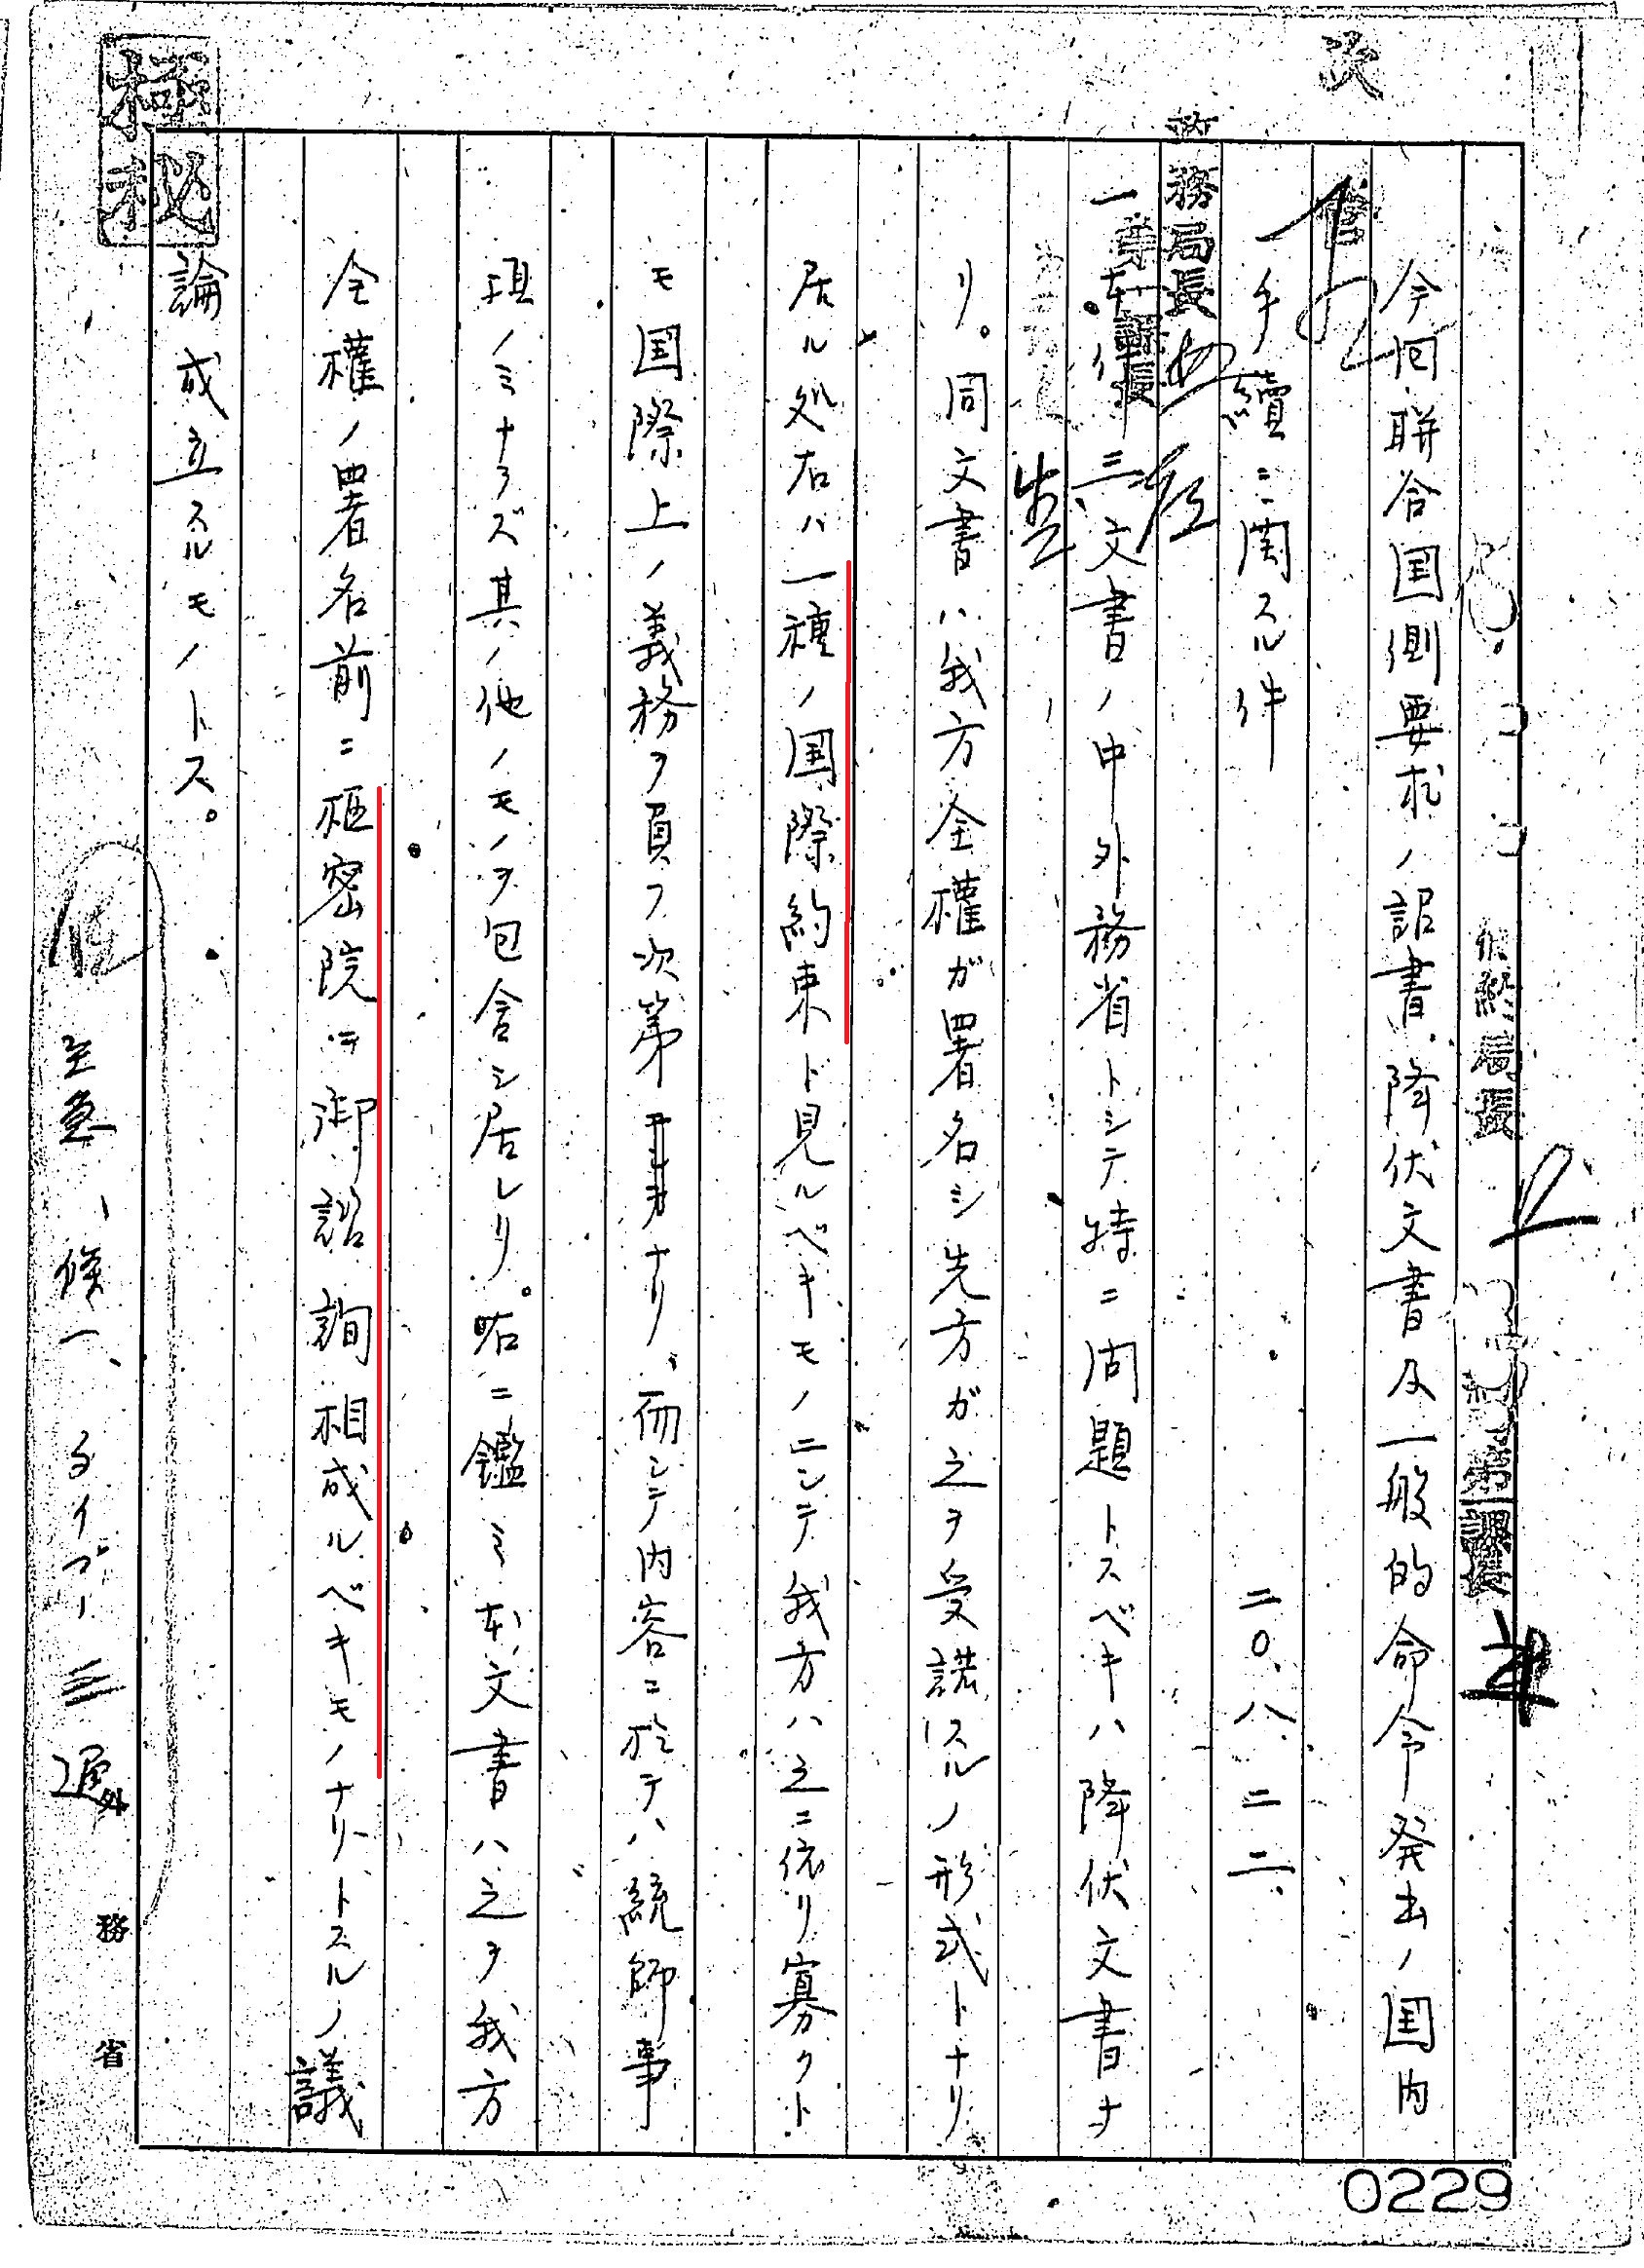 次
条約局長
第一課長
今回聯合国側要求ノ詔書、降伏文書及一般的命令発出ノ国内
手續ニ関スル件
二〇、八、二二、
政務局長
一、本件三文書ノ中外務省トシテ特ニ問題トスベキハ降伏文書ナ
リ。同文書ハ我方全權ガ署名シ先方ガ之ヲ受諾スルノ形式トナリ
居ル処右ハ一種ノ国際約束ト見ルベキモノニシテ我方ハ之ニ依リ寡クト
モ国際上ノ義務ヲ負フ次第ナリ、而シテ内容ニ於テハ統帥事
項ノミナラズ其ノ他ノモノヲ包含シ居レリ。右ニ鑑ミ本文書ハ之ヲ我方
全權ノ署名前ニ枢密院ニ御諮詢相成ルベキモノナリトスルノ議
論成立スルモノトス。
極秘
至急
タイプ 三通
外務省
0229